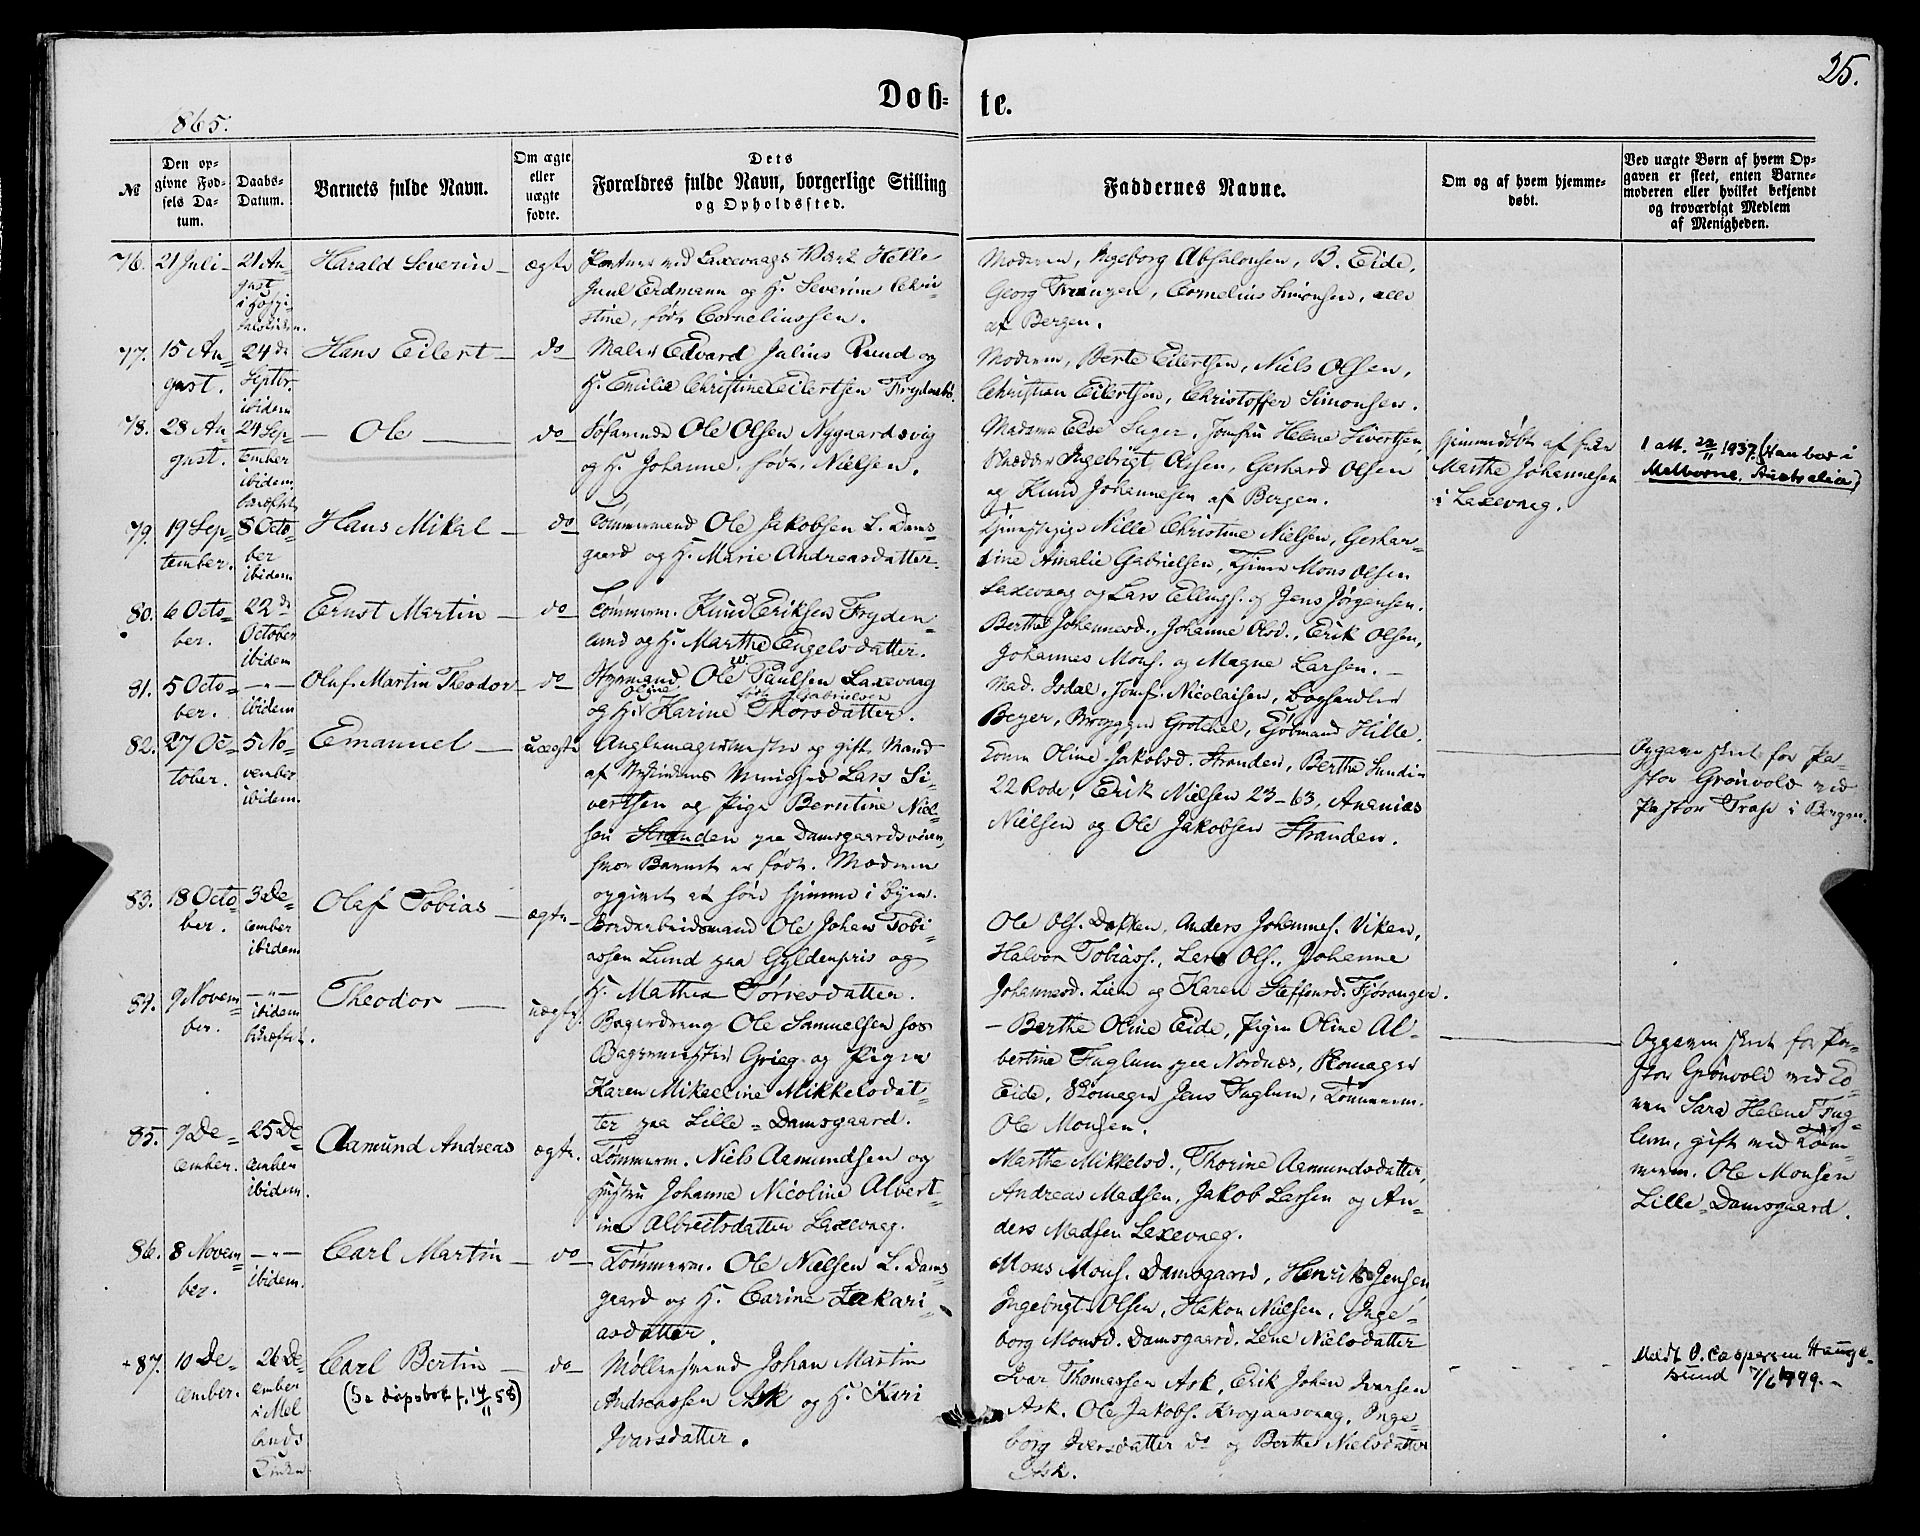 25.
Døb=
te.
1865.
№
Den op-
givne Fød-
sels Da-
tum.
Daabs-
Datum.
Barnets fulde Navn.
Om ægte
eller
uægte
fødte.
Dets
Forældres fulde Navn, borgerlige Stilling
og Opholdssted.
Faddernes Navne.
Om og af hvem hjemme-
døbt.
Ved uægte Børn af hvem Op-
gaven er skeet, enten Barne-
moderen eller hvilket bekjendt
og troværdigt Medlem
af Menigheden.
76.
21 Juli
21 Au-
gust
Harald Severin
ægte
ved Laxevaags Værk Helle
Juul Erdmann og H. Severine Chri-
stine, født Corneliussen.
Moderen, Ingeborg Absalonsen, B. Eide,
Georg Frantzen, Cornelius Simonsen, alle
af Bergen.
77.
15 Au-
gust.
24de
Septbr.
ibidem
Hans Eilert
do
Maler Edvard Julius Rund og
H. Emilie Christine Eilertsen Frydenbø.
Moderen, Berte Eilertsen, Niels Olsen,
Christian Eilertsen, Christoffer Simonsen.
78.
28 Au-
gust.
24 Sep-
tember
ibidem
Ole
do
Søfarende Ole Olsen Nygaardsvig
og H. Johanne, født Nielsen.
Madame Else Sager, Jomfru Helene Sivertsen,
Skrædder Ingebrigt Olsen, Gerhard Olsen
og Knud Johannesen af Bergen.
Hjemmedøbt af
Marthe Johannesen
i Laxevaag.
1 att. 22/11 1937. (Han bor i
Melborne, Australia)
79.
19 Sep-
tember.
8 Octo-
ber
ibidem
Hans Mikal
do
Tømmermand Ole Jakobsen L. Dams-
gaard og H. Marie Andreasdatter.
Nille Christine Nielsen, Gerhar-
dine Amalie Gabrielsen, Mons Olsen
Laxevaag og Lars Ellings. og Jens Jørgensen.
80.
6 Octo-
ber.
22de
October
ibidem
Ernst Martin
do
Tømmerm. Knud Eriksen Fryden-
lund og H. Marthe Engelsdatter.
Berthe Johannesd., Johanne Olsd., Erik Olsen,
Johannes Mons. og Magne Larsen.
81.
5 Octo-
ber.
—"—
ibidem
Oluf Martin Theodor
do
Styrmand Ole W. Paulsen Laxevaag
Oline født Gabrielsen
og H. Karine Thorsdatter.
Mad. Isdal, Jomf. Nicolaisen, Boghandler
Beyer, Brygger Grotchel, Kjøbmand Hille.
82.
27 Oc-
tober.
5 No-
vember
ibidem.
Emanuel
uægte
og gift Mand
af Menighed Lars Si-
vertsen og Pige Berntine Niel-
sen Stranden paa Damsgaardsveien,
hvor Barnet er født. Moderen
opgivet at høre hjemme i Byen.
Oline Jakobsd. Stranden, Berthe Sundin
22 Rode, Erik Nielsen 23-63, Ananias
Nielsen og Ole Jakobsen Stranden.
Opgaven skeet for Pa-
stor Grønvold ved
Pastor Trap i Bergen.
83.
18 Octo-
ber.
3 De-
cember
ibidem
Olaf Tobias
ægte
Bordarbeidsmand Ole Johan Tobi-
assen Lund paa Gyldenpris og
H. Mathea Tørresdatter.
Ole Ols. Dokken, Anders Johannes. Viken,
Halvor Tobiass., Lars Ols., Johanne
Johannesd. Lien og Karen Steffensd. Fjøsanger.
84.
9 Novem-
ber.
—"—
ibidem
Theodor
uægte
Bagerdreng Ole Samuelsen hos
Bagermester Grieg og Pigen
Karen Mikaeline Mikkelsdat-
ter paa Lille-Damsgaard.
Berthe Oline Eide, Pigen Oline Al-
bertine Fuglum paa Nordnæs, Skomager
Eide, Skomager Jens Fuglum, Tømmerm.
Ole Monsen.
Opgaven skeet for Pa-
stor Grønvold ved Ko-
nen Sara Helene Fug-
lum, gift med Tøm-
merm. Ole Monsen
Lille-Damsgaard.
85.
9 De-
cember.
25 De-
cember
ibidem.
Aamund Andreas
ægte.
Tømmerm. Niels Aamundsen og
Hustru Johanne Nicoline Albert-
ine Albrektsdatter Laxevaag.
Marthe Mikkelsd., Thorine Aamundsdatter,
Andreas Madsen, Jakob Larsen og An-
ders Madsen Laxevaag.
86.
8 Novem-
ber.
—"—
ibidem.
Carl Martin
do
Tømmerm. Ole Nielsen L. Dams-
gaard og H. Carine Zakari-
asdatter.
Mons Mons. Damsgaard, Henrik Jensen,
Ingebrigt Olsen, Hakon Nielsen, Inge-
borg Monsd. Damsgaard. Lene Nielsdatter
+87.
10 De-
cember.
26 De-
cember
i Mel-
lands
Kirken
Carl Bertin
(Se dåpsbok f. 14/11 58)
do
Møllersvend Johan Martin
Andreassen Ask og H. Kari
Ivarsdatter.
Ivar Thomassen Ask, Erik Johan Ivarsen
Ask. Ole Jakobs. Inge-
borg Iversdatter do og Berthe Nielsdatter
Ask.
Meldt O. Caspersen Hauge-
sund